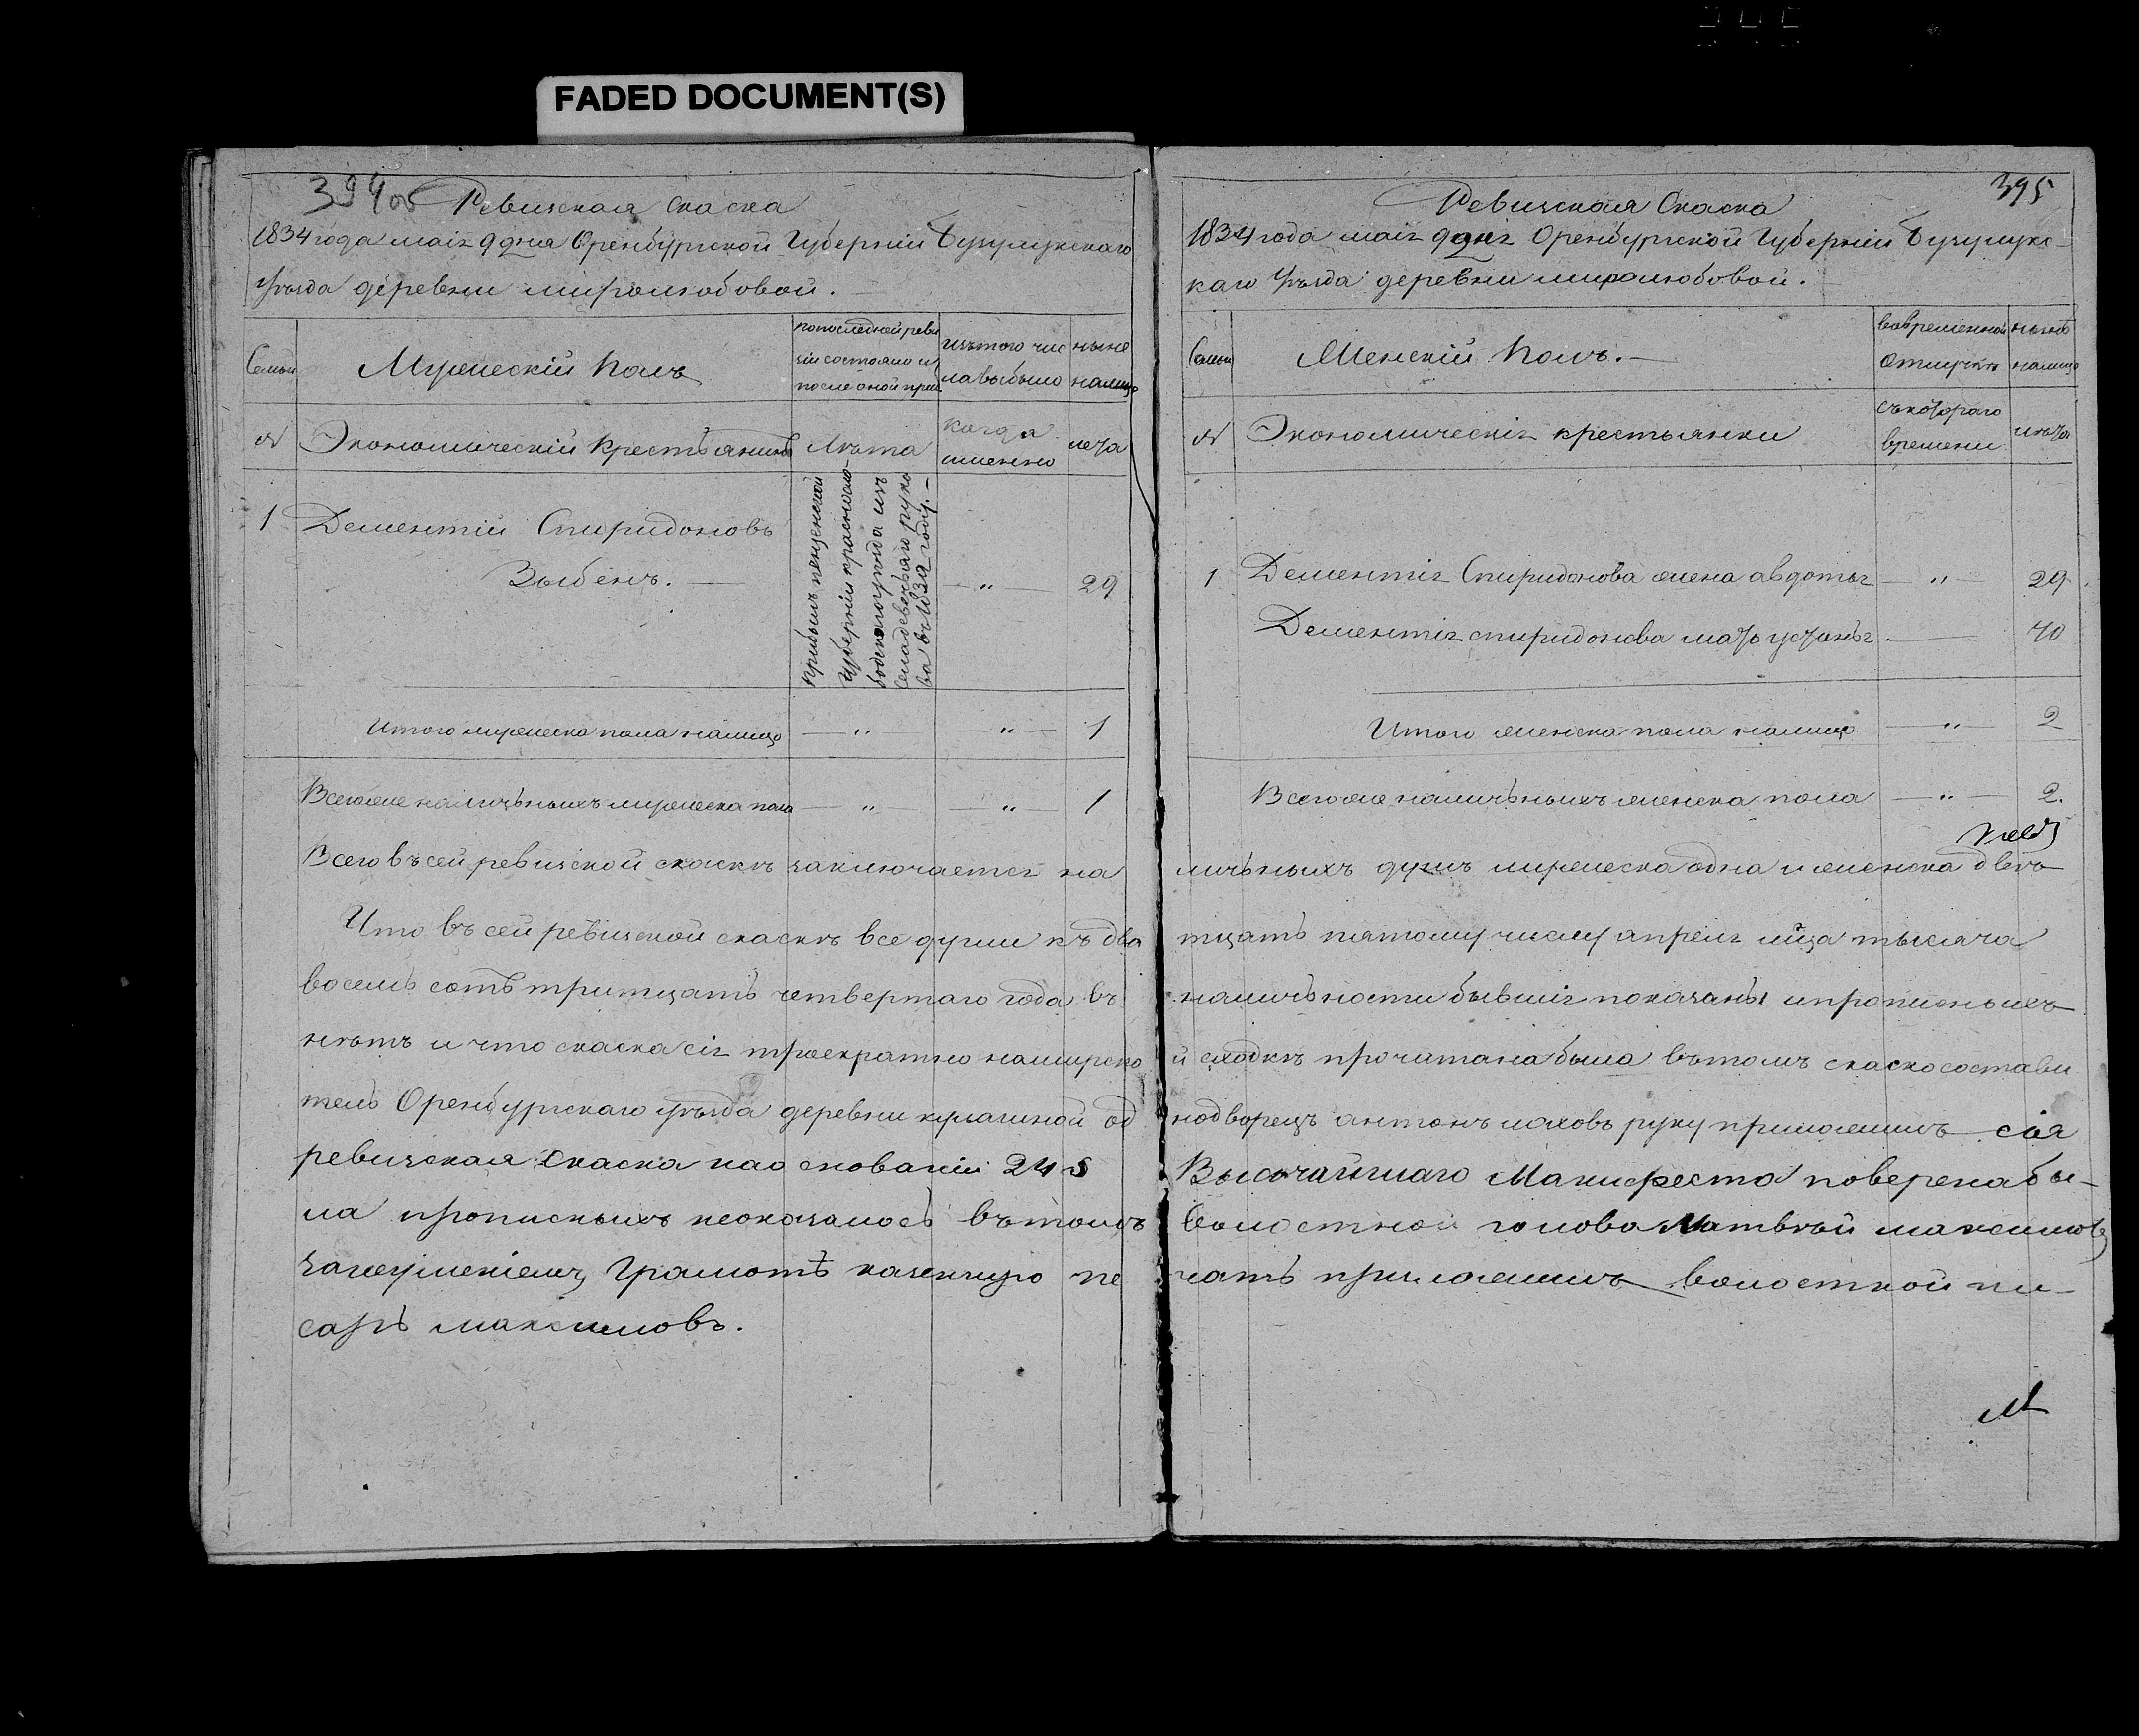 FADED DOCUMENT(S)
394об
Ревизская скаска
1834 года маія 9 дня Оренбургской Губерніи Бузулукскаго
уѣзда деревни миролюбовой.
Семьи
Мужескій полъ
по последней реви
зіи состояло и
после оной приб.
изътого чис
ла выбыло
ныне
налицо
№
Экономическій Крестьянинъ
Лѣта
когда
именно
лета
1
Дементій Спиридоновъ
Зыбенъ.
прибылъ пензенской
Губерніи краснosло-
бодскаго уѣзда изъ
ва въ 1032 году.
— " —
29
Итого мужеска пола налицо — " — — " — 1
Всегоже наличьныхъ мужеска пола — " — — " — 1
Всего въ сей ревизской скаскѣ заключается на
Что въ сей ревизской скаскѣ все души къ два
восемь сотъ тритцать четвертаго года въ
нѣтъ и что скаска сія троекратно намирско
тель Оренбургскаго уѣзда деревни кулагиной од
ревизская скаска на основаніи 24 §
ла прописныхъ неоказалось въ томъ
занеуменіемъ грамотѣ казенную пе
сарь максимовъ.
395
Ревизская Скаска
1834 года маія 9 дня Оренбургской Губерніи Бузулукс-
каго Уѣзда деревни миролюбовой.
Семьи
Женскій полъ.
вовременной
отлучкѣ
нынѣ
налицо
№
Экономическія крестьянки
съкотораго
времени
лѣта
1
Дементія Спиридонова жена авдотья — " — 29
Дементія спиридонова мать устинья. — 70
Итого женска пола налицо — " — 2
Всегоже наличьныхъ женска пола — " — 2.
личьныхъ душъ мужеска одна и женска двѣ
тцать пятому числу апреля мца тысяча
наличьности бывшія показаны ипрописныхъ
й сходкѣ прочитана была вътомъ скаскосостави
нодворецъ антонъ маховъ руку приложилъ сія
Высочайшаго Манифеста поверена бы-
волостной голова Матвѣй максимовъ
чать приложилъ волостной пи-